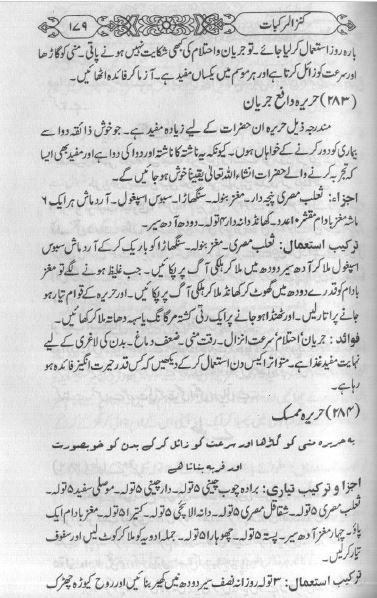 کنز المرکبات
۱۷۹
بارہ روز استعمال کر لیا جائے۔ تو جریان و احتلام کی بھی شکایت نہیں ہونے پاتی۔ منی کو گاڑھا
اور سرعت کو زائل کرتا ہے اور ہر موسم میں یکساں مفید ہے۔ آزما کر فائدہ اٹھائیں۔
(۲۸۳) حریرہ دافع جریان
مندرجہ ذیل حریرہ ان حضرات کے لیے زیادہ مفید ہے۔ جو خوش ذائقہ دوا سے
بیماری کو دور کرنے کے خواہاں ہوں۔ کیونکہ یہ ناشتہ کا ناشتہ اور دوا کی دوا ہے اور مفید بھی ایسا
کہ تجربہ کرنے والے حضرات انشاء اللہ تعالیٰ یقیناً خوش ہو جائیں گے۔
اجزاء: ثعلب مصری پنجہ دار۔ مغز بنولہ۔ سنگھاڑا۔ سبوس اسپغول۔ آرد ماش ہر ایک ۶
ماشہ مغز بادام مقشر ۱۰ عدد۔ کھانڈ دانہ دار ۴ تولہ۔ دودھ آدھ سیر۔
ترکیب استعمال: ثعلب مصری۔ مغز بنولہ۔ سنگھاڑا کو باریک کر کے آرد ماش سبوس
اسپغول ملا کر آدھ سیر دودھ میں ملا کر ہلکی آگ پر پکائیں۔ جب غلیظ ہونے لگے تو مغز
بادام کو قدرے دودھ میں گھوٹ کر کھانڈ ملا کر ہلکی آگ پر پکائیں۔ اور حریرہ کے قوام تیار ہو
جانے پر اتار لیں۔ اور ٹھنڈا ہو جانے پر ایک رتی کشتہ مرگانگ یا سہ دھاتہ ملا کر کھائیں۔
فوائد: جریان، احتلام، سرعت انزال۔ رقت منی۔ ضعف دماغ۔ بدن کی لاغری کے لیے
نہایت مفید غذا ہے۔ متواتر اکیس دن استعمال کر کے دیکھیں کہ کس قدر حیرت انگیز فائدہ ہو
رہا ہے۔
(۲۸۴) حریرہ ممسک
یہ حریرہ منی کو گاڑھا اور سرعت کو زائل کرکے بدن کو خوبصورت
اور فربہ بناتا ہے
اجزا و ترکیب تیاری: برادہ چوب چینی ۵ تولہ۔ دار چینی ۵ تولہ۔ موصلی سفید ۵ تولہ۔
ثعلب مصری ۵ تولہ۔ شقاقل مصری ۵ تولہ۔ دانہ الائچی ۵ تولہ۔ کتیرا ۵ تولہ۔ مغز بادام ایک
پاؤ۔ چہار مغز آدھ سیر۔ پستہ ۵ تولہ۔ چھوہارا ۵ تولہ۔ جملہ ادویہ کو ملا کر کوٹ لیں اور سفوف
تیار کر لیں۔
ترکیب استعمال: ۳ تولہ روزانہ نصف سیر دودھ میں کھیر بنائیں اور روح کیوڑہ چھڑک